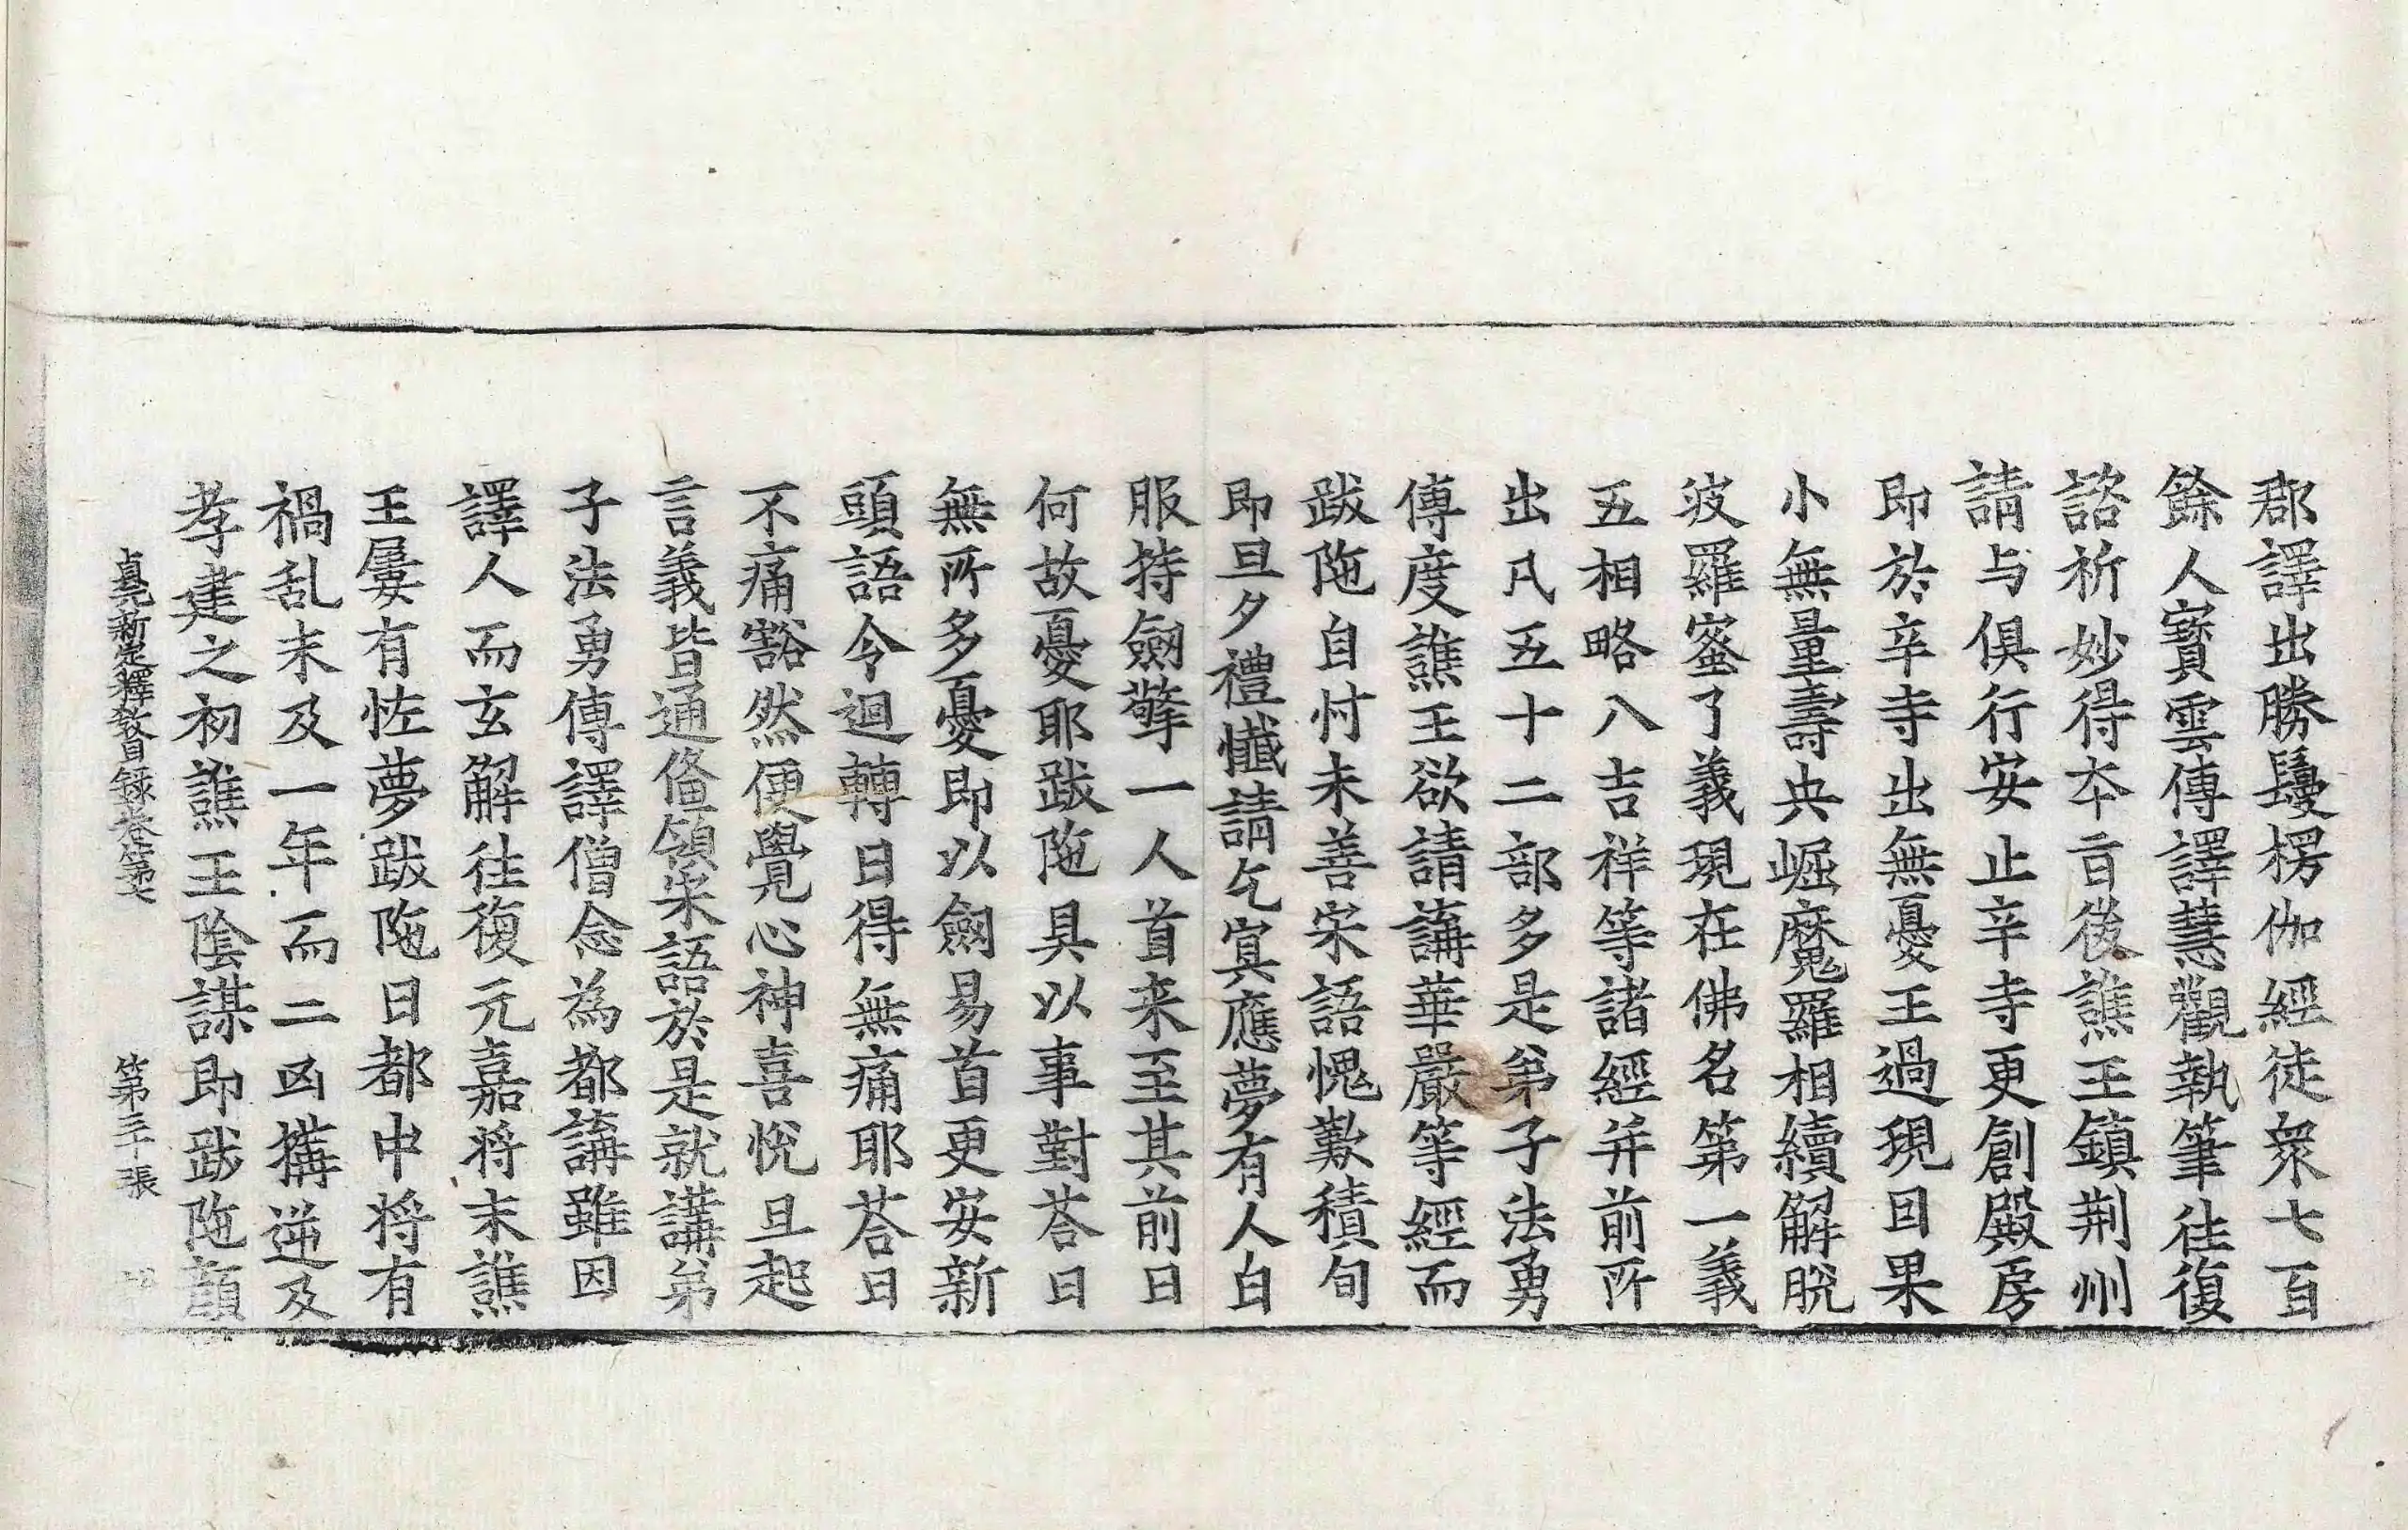 郡譯出勝鬘楞伽經徒衆七百
餘人寳雲傳譯慧觀執筆往復
諮析妙得夲旨後譙王鎮荆州
請与俱行安止辛寺更創殿房
即於辛寺出無憂王過現因果
小無量壽央崛魔羅相續解脱
波羅蜜了義現在佛名第一義
五相略八吉祥等諸經并前所
出凡五十二部多是弟子法勇
傳度譙王欲請講華嚴等經而
跋陁自忖未善宋語愧歎積旬
即旦夕禮懺請乞冥應夢有人白
服持劔擎一人首来至其前曰
何故憂耶跋陁具以事對荅曰
無所多憂即以劔易首更安新
頭語令迴轉曰得無痛耶荅曰
不痛豁然便覺心神喜恱旦起
言義皆通俻領宋語於是就講弟
子法勇傳譯僧念為都講雖因
譯人而玄解往復元嘉将末譙
王屢有恠夢跋陁曰都中将有
禍乱未及一年而二凶搆逆及
孝建之初譙王陰謀即跋陁顔
貞元新定釋教目録卷第七 第三十張